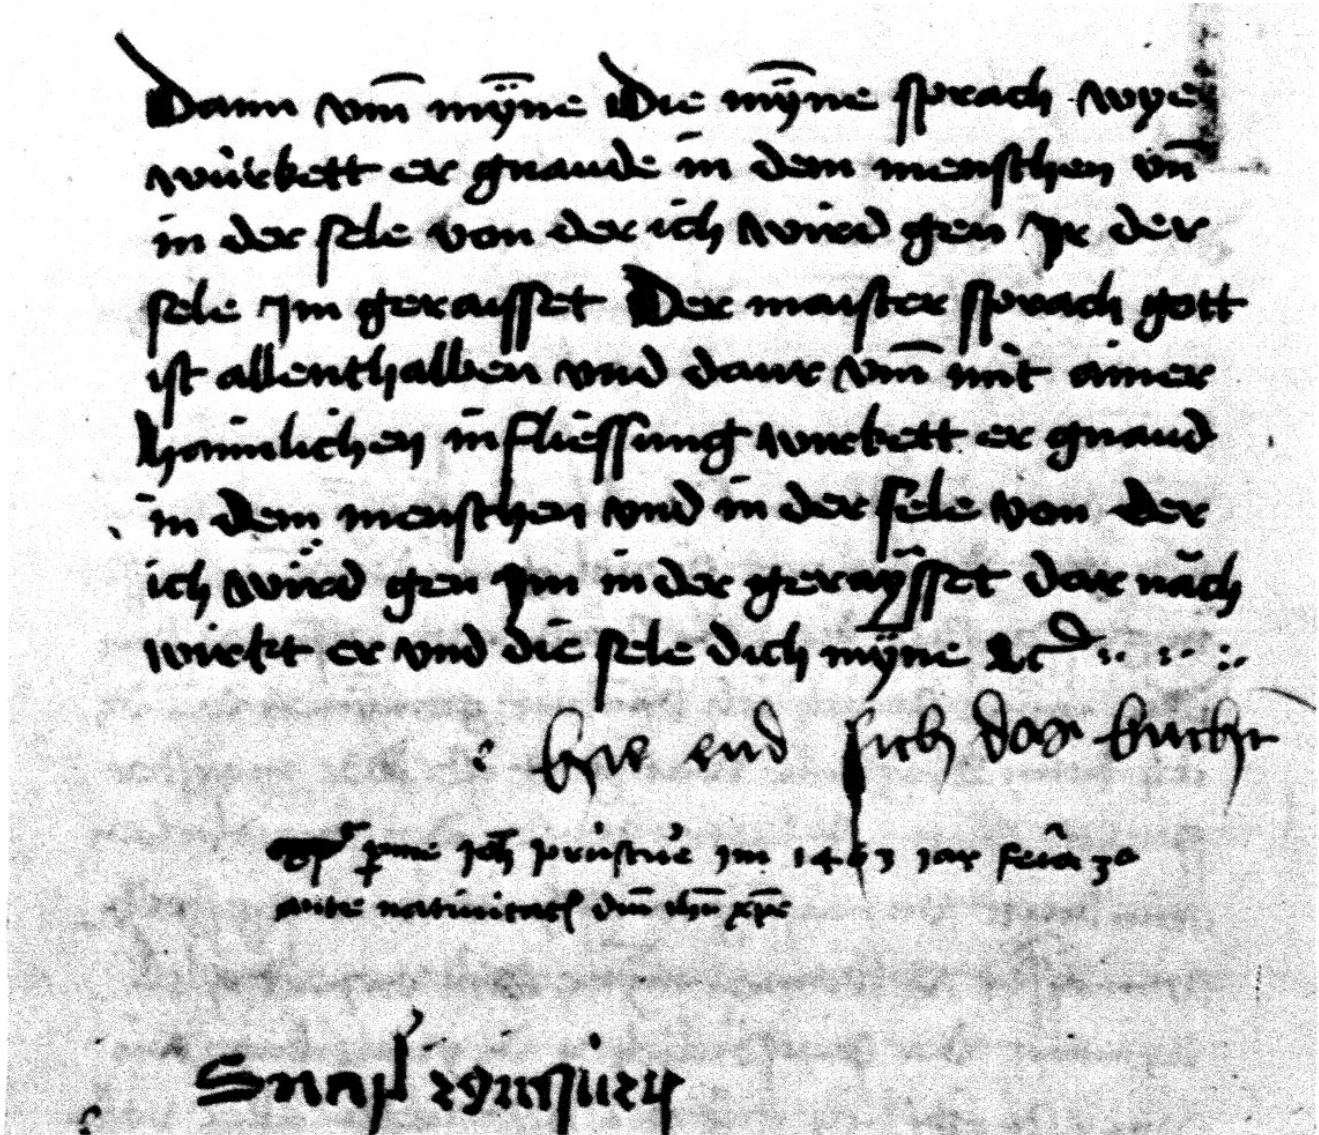 Dann vm̄ mÿne Die mÿne sprach wye
würkett er gnaude in dem menschen vn̄
in der sele von der ich wird gen Jr der
sele Jm geraisset Der maister sprach gott
ist allenthalben vnd dar vm̄ mit ainer
haimlichen infliessung wirkett er gnaud
in dem menschen vnd in der sele von der
ich wird gen Jm in der geraÿsset dar nāch
wirkt er vnd die sele dich mÿne
hie end sich das buech
per me joh im 1463 jar feria 3a
ante natiuitatē dm̄ ihū xpē